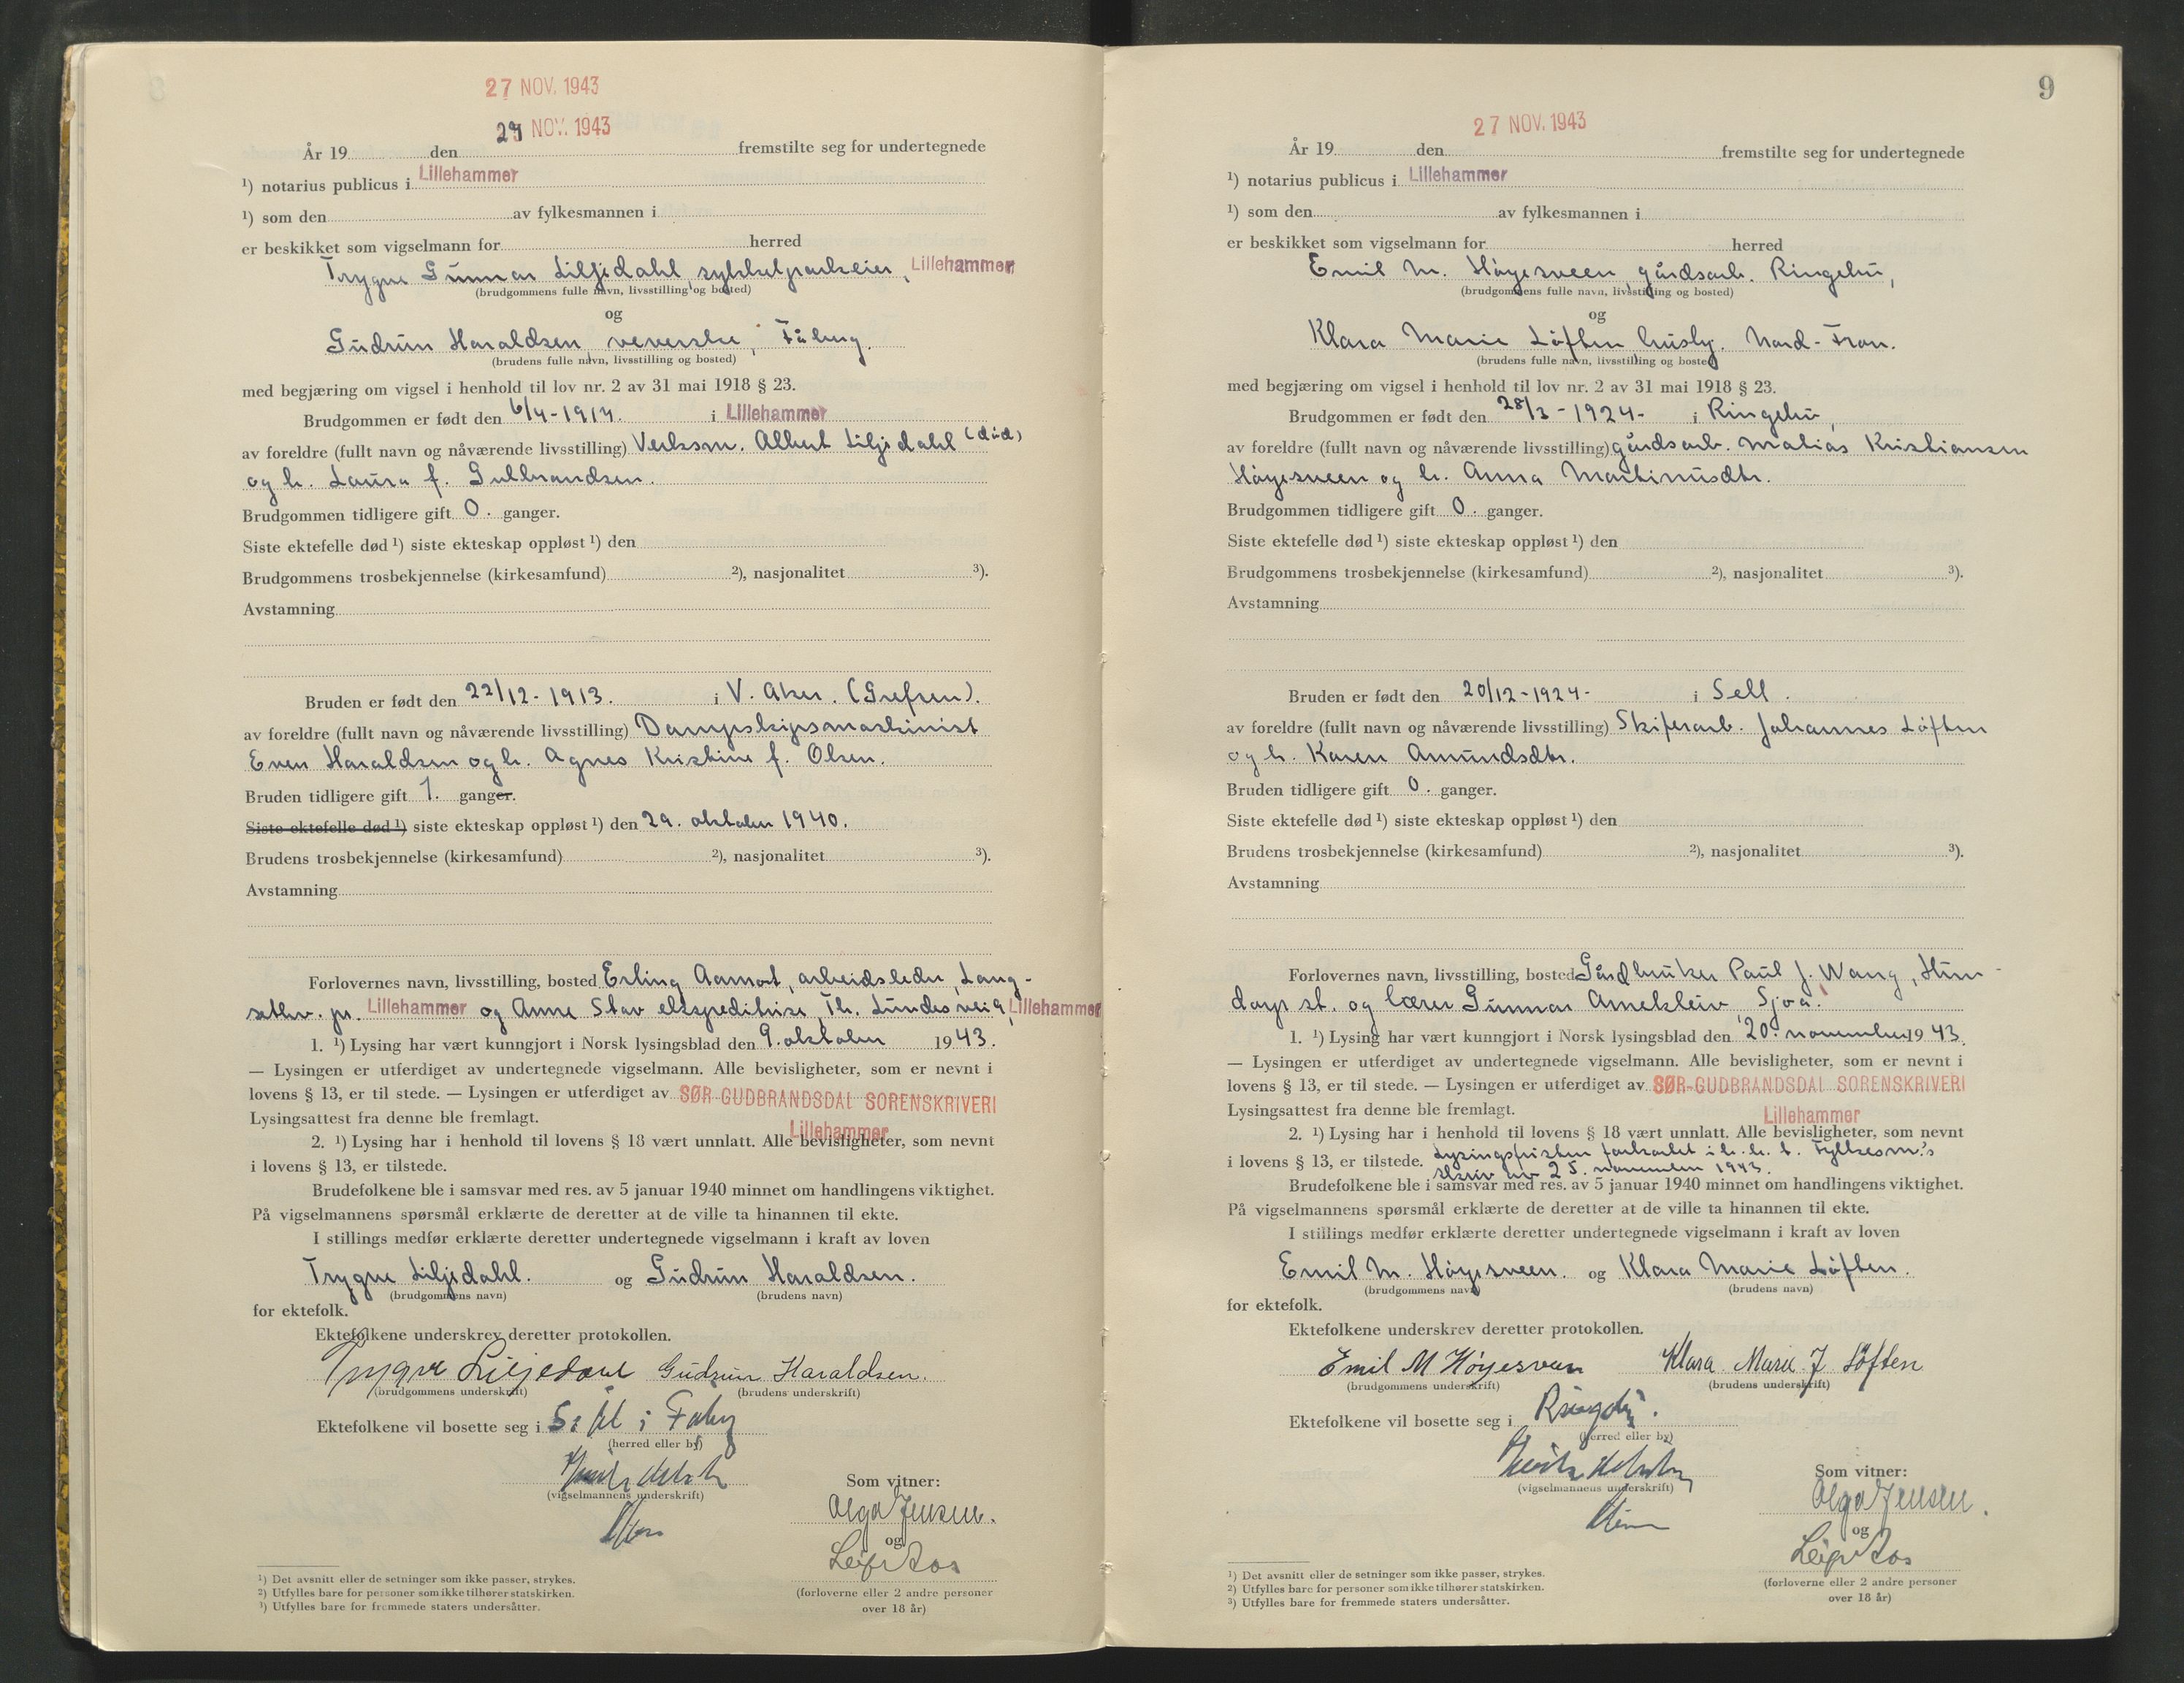 27 NOV. 1943
NOV. 1943
År 19 den fremstilte seg for undertegnede
¹) notarius publicus i Lillehammer
¹) som den av fylkesmannen i
er beskikket som vigselmann for herred
Trygve Gunnar Liljedahl sykkelparkeier, Lillehammer
(brudgommens fulle navn, livsstilling og bosted)
og
Gudrun Haraldsen veverske, Fåberg.
(brudens fulle navn, livsstilling og bosted)
med begjæring om vigsel i henhold til lov nr. 2 av 31 mai 1918 § 23.
Brudgommen er født den 6/4-1914. i Lillehammer
av foreldre (fullt navn og nåværende livsstilling) Verksm. Albert Liljedahl (død)
og h. Laura f. Gulbrandsen.
Brudgommen tidligere gift 0. ganger.
Siste ektefelle død ¹) siste ekteskap oppløst ¹) den
Brudgommens trosbekjennelse (kirkesamfund) ²), nasjonalitet ³).
Avstamning
Bruden er født den 22/12-1913. i V. Aker. (Grefsen).
av foreldre (fullt navn og nåværende livsstilling) Dampskipsmaskinist
Even Haraldsen og h. Agnes Kristine f. Olsen.
Bruden tidligere gift 1. ganger.
Siste ektefelle død ¹) siste ekteskap oppløst ¹) den 29. oktober 1940.
Brudens trosbekjennelse (kirkesamfund) ²), nasjonalitet ³).
Avstamning
Forlovernes navn, livsstilling, bosted Erling Aamot, arbeidsleder, Lang-
sethv. pr. Lillehammer og Anne Stav ekspeditrise, Th. Lundes vei 9, Lillehammer
1. ¹) Lysing har vært kunngjort i Norsk lysingsblad den 9. oktober 1943.
— Lysingen er utferdiget av undertegnede vigselmann. Alle bevisligheter, som er nevnt i
lovens § 13, er til stede. — Lysingen er utferdiget av SØR-GUDBRANDSDAL SORENSKRIVERI
Lysingsattest fra denne ble fremlagt.
Lillehammer
2. ¹) Lysing har i henhold til lovens § 18 vært unnlatt. Alle bevisligheter, som nevnt
i lovens § 13, er tilstede.
Brudefolkene ble i samsvar med res. av 5 januar 1940 minnet om handlingens viktighet.
På vigselmannens spørsmål erklærte de deretter at de ville ta hinannen til ekte.
I stillings medfør erklærte deretter undertegnede vigselmann i kraft av loven
Trygve Liljedahl. og Gudrun Haraldsen.
(brudgommens navn) (brudens navn)
for ektefolk.
Ektefolkene underskrev deretter protokollen.
Trygve Liljedahl Gudrun Haraldsen.
(brudgommens underskrift) (brudens underskrift)
Ektefolkene vil bosette seg i i Fåberg
(herred eller by)
Som vitner:
(vigselmannens underskrift)
Olga Jensen.
og
Leif
(forloverne eller 2 andre personer
over 18 år)
¹) Det avsnitt eller de setninger som ikke passer, strykes.
²) Utfylles bare for personer som ikke tilhører statskirken.
³) Utfylles bare for fremmede staters undersåtter.
9
27 NOV. 1943
År 19 den fremstilte seg for undertegnede
¹) notarius publicus i Lillehammer
¹) som den av fylkesmannen i
er beskikket som vigselmann for herred
Emil M. Høyesveen, gårdsarb. Ringebu,
(brudgommens fulle navn, livsstilling og bosted)
og
Klara Marie Løften husby. Nord-Fron.
(brudens fulle navn, livsstilling og bosted)
med begjæring om vigsel i henhold til lov nr. 2 av 31 mai 1918 § 23.
Brudgommen er født den 28/3-1924- i Ringebu,
av foreldre (fullt navn og nåværende livsstilling) gårdsarb. Matias Kristiansen
Høyesveen og h. Anna Martinusdtr.
Brudgommen tidligere gift 0. ganger.
Siste ektefelle død ¹) siste ekteskap oppløst ¹) den
Brudgommens trosbekjennelse (kirkesamfund) ²), nasjonalitet ³).
Avstamning
Bruden er født den 20/12-1924- i Sell.
av foreldre (fullt navn og nåværende livsstilling) Skiferarb. Johannes Løften
og h. Karen Amundsdtr.
Bruden tidligere gift 0. ganger.
Siste ektefelle død ¹) siste ekteskap oppløst ¹) den
Brudens trosbekjennelse (kirkesamfund) ²), nasjonalitet ³).
Avstamning
Forlovernes navn, livsstilling, bosted Gårdbruker Paul J. Wang, Hun-
dorp st. og lærer Gunnar Arnekleiv Sjoa.
1. ¹) Lysing har vært kunngjort i Norsk lysingsblad den 20. november 1943.
— Lysingen er utferdiget av undertegnede vigselmann. Alle bevisligheter, som er nevnt i
lovens § 13, er til stede. — Lysingen er utferdiget av SØR-GUDBRANDSDAL SORENSKRIVERI
Lysingsattest fra denne ble fremlagt.
Lillehammer
2. ¹) Lysing har i henhold til lovens § 18 vært unnlatt. Alle bevisligheter, som nevnt
i lovens § 13, er tilstede. Lysingsfristen forkortet i h. h. t. Fylkesm.'s
skriv av 25. november 1943.
Brudefolkene ble i samsvar med res. av 5 januar 1940 minnet om handlingens viktighet.
På vigselmannens spørsmål erklærte de deretter at de ville ta hinannen til ekte.
I stillings medfør erklærte deretter undertegnede vigselmann i kraft av loven
Emil M. Høyesveen. og Klara Marie Løften.
(brudgommens navn) (brudens navn)
for ektefolk.
Ektefolkene underskrev deretter protokollen.
Emil M Høyesveen Klara Marie J. Løften
(brudgommens underskrift) (brudens underskrift)
Ektefolkene vil bosette seg i Ringebu.
(herred eller by)
Som vitner:
(vigselmannens underskrift)
Olga Jensen.
og
Leif
(forloverne eller 2 andre personer
over 18 år)
¹) Det avsnitt eller de setninger som ikke passer, strykes.
²) Utfylles bare for personer som ikke tilhører statskirken.
³) Utfylles bare for fremmede staters undersåtter.